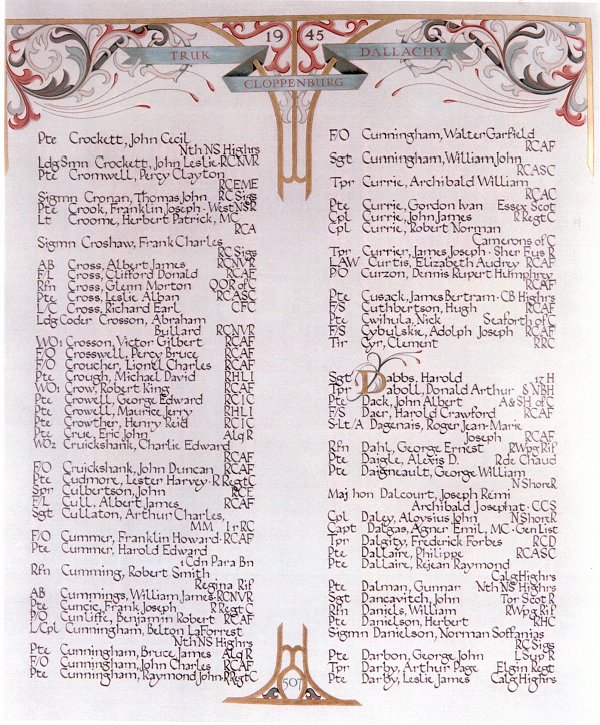 1945
TRUK
DALLACHY
CLOPPENBURG
Pte Crockett, John Cecil
Nth NS Highrs
Ldg Smn Crockett, John Leslie·RCNVR
Pte Cromwell, Percy Clayton
RCEME
Sigmn Cronan, Thomas John RC Sigs
Pte Crook, Franklin Joseph·West NSR
Lt Croome, Herbert Patrick, MC
RCA
Sigmn Croshaw, Frank Charles
RC Sigs
AB Cross, Albert James RCNVR
F/L Cross, Clifford Donald RCAF
Rfn Cross, Glenn Morton QOR of C
Pte Cross, Leslie Alban RCASC
L/C Cross, Richard Earl CFC
Ldg Coder Crosson, Abraham
Bullard RCNVR
WO1 Crosson, Victor Gilbert RCAF
F/O Crosswell, Percy Bruce RCAF
F/O Croucher, Lionel Charles RCAF
Pte Crough, Michael David RHLI
WO1 Crow, Robert King RCAF
Pte Crowell, George Edward RCIC
Pte Crowell, Maurice Jerry RHLI
Pte Crowther, Henry Reid RCIC
Pte Crue, Eric John Alq R
WO2 Cruickshank, Charlie Edward
RCAF
F/O Cruickshank, John Duncan RCAF
Pte Cudmore, Lester Harvey·R Regt C
Spr Culbertson, John RCE
F/L Cull, Albert James RCAF
Sgt Cullaton, Arthur Charles,
MM 1rRC
F/O Cummer, Franklin Howard·RCAF
Pte Cummer, Harold Edward
1 Cdn Para Bn
Rfn Cumming, Robert Smith
Regina Rif
AB Cummings, William James·RCNVR
Pte Cuncic, Frank Joseph R Regt C
P/O Cunliffe, Benjamin Robert RCAF
L/Cpl Cunningham, Belton LaForrest
Nth NS Highrs
Pte Cunningham, Bruce James Alq R
F/O Cunningham, John Charles RCAF
Pte Cunningham, Raymond John·R Regt C
F/O Cunningham, Walter Garfield
RCAF
Sgt Cunningham, William John
RCASC
Tpr Currie, Archibald William
RCAC
Pte Currie, Gordon Ivan Essex Scot
Cpl Currie, John James R Regt C
Cpl Currie, Robert Norman
Camerons of C
Tpr Currier, James Joseph·Sher Fus R
LAW Curtis, Elizabeth Audrey RCAF
P/O Curzon, Dennis Rupert Humphrey
RCAF
Pte Cusack, James Bertram·CB Highrs
F/S Cuthbertson, Hugh RCAF
Pte Cwihula, Nick Seaforth of C
F/S Cybulskie, Adolph Joseph RCAF
Tir Cyr, Clement RRC
Sgt Dabbs, Harold 17 H
Tpr Daboll, Donald Arthur 8 NBH
Pte Dack, John Albert A & SH of C
F/S Daer, Harold Crawford RCAF
S-Lt/A Dagenais, Roger Jean-Marie
Joseph RCAF
Rfn Dahl, George Ernest RWpg Rif
Pte Daigle, Alexis D. R de Chaud
Pte Daigneault, George William
N Shore R
Maj hon Dalcourt, Joseph Rémi
Archibald Josephat·CCS
Cpl Daley, Aloysius John N Shore R
Capt Dalgas, Agner Emil, MC·Gen List
Tpr Dalgity, Frederick Forbes RCD
Pte Dallaire, Philippe RCASC
Pte Dallaire, Rejean Raymond
Calg Highrs
Pte Dalman, Gunnar Nth NS Highrs
Sgt Dancavitch, John Tor Scot R
Rfn Daniels, William RWpg Rif
Pte Danielson, Herbert RHC
Sigmn Danielson, Norman Soffanias
RC Sigs
Pte Darbon, George John L Sup R
Tpr Darby, Arthur Page Elgin Regt
Pte Darby, Leslie James Calg Highrs
507